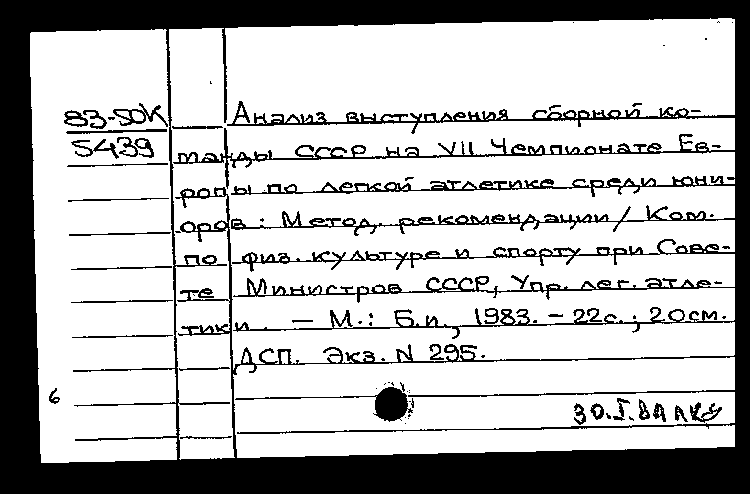 83-50К
5439
Анализ выступления сборной ко-
манды СССР на VII Чемпионате Ев-
ропы по легкой атлетике среди юни-
оров : Метод. рекомендации / Ком.
по физ. культуре и спорту при Сове-
те Министров СССР, Упр. лег. атле-
тики. – М.: Б.и., 1983. – 22с.; 20см.
ДСП. Экз. N 295.
6